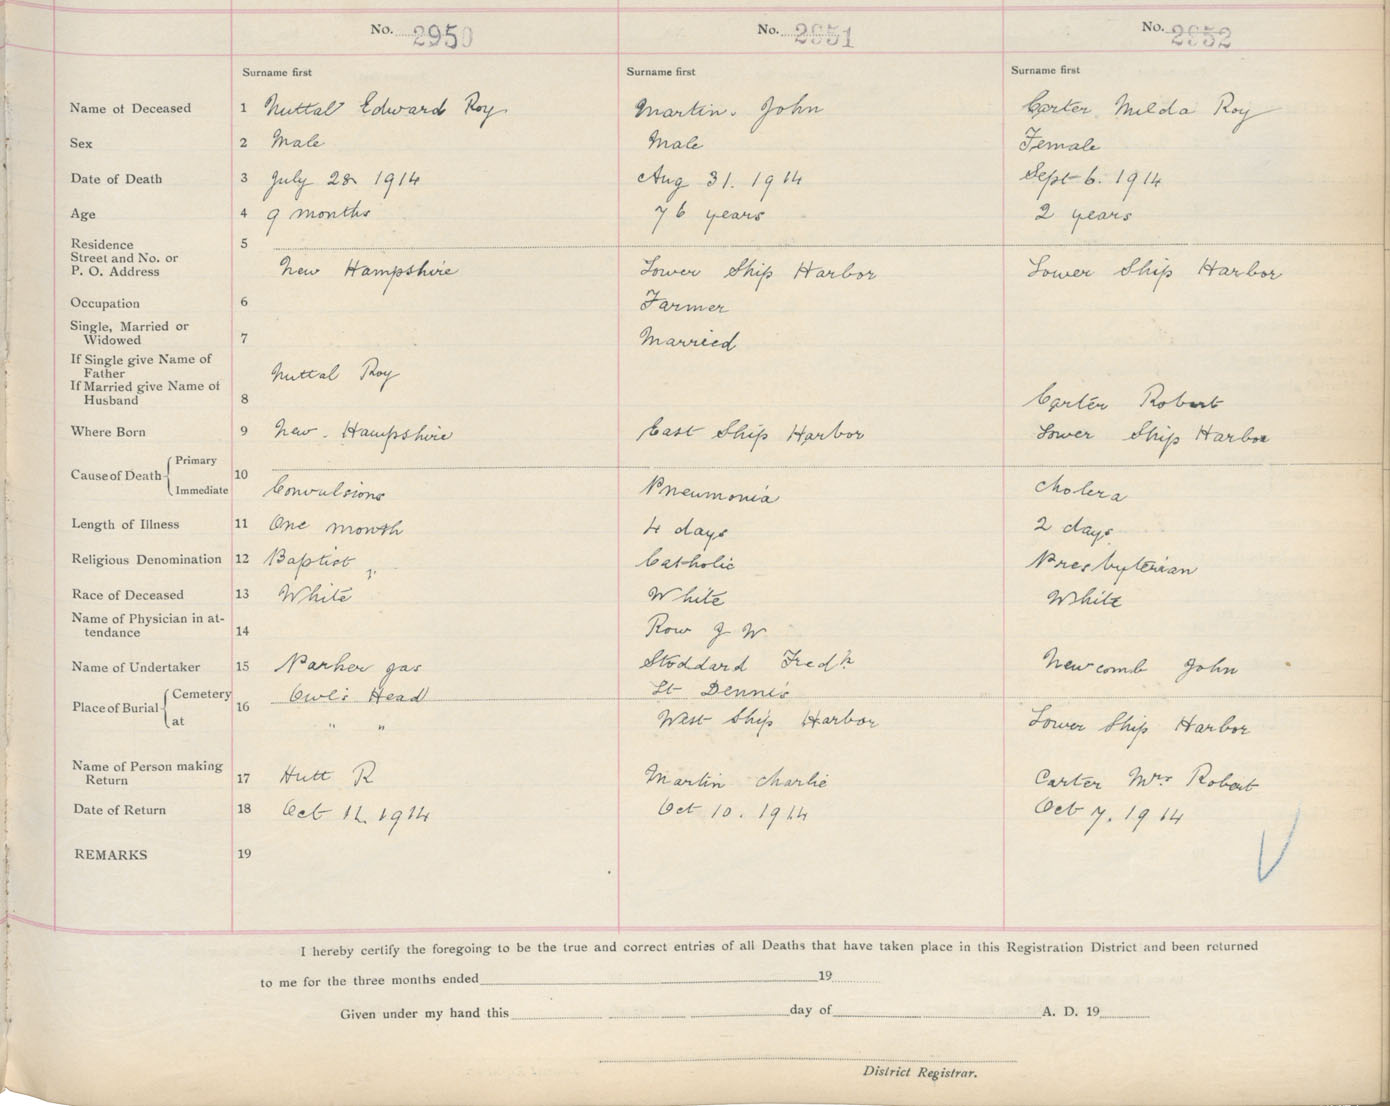 No. 2950 No. 2951 No. 2952
Surname first Surname first Surname first
Name of Deceased 1 Nuttal Edward Roy Martin. John Carter Milda Roy
Sex 2 Male Male Female
Date of Death 3 July 28 1914 Aug 31. 1914 Sept 6. 1914
Age 4 9 months 76 years 2 years
Residence 5
Street and No. or
P. O. Address New Hampshire Lower Ship Harbor Lower Ship Harbor
Occupation 6 Farmer
Single, Married or
Widowed 7 Married
If Single give Name of
Father Nuttal Roy
If Married give Name of
Husband 8 Carter Robert
Where Born 9 New. Hampshire East Ship Harbor Lower Ship Harbor
Cause of Death Primary 10
Immediate Convulsions Pneumonia cholera
Length of Illness 11 One month 4 days 2 days
Religious Denomination 12 Baptist Catholic Presbyterian
Race of Deceased 13 White White White
Name of Physician in at-
tendance 14 Row J W
Name of Undertaker 15 Parker Stoddard Fredk Newcomb John
Place of Burial Cemetery 16 Owl's Head St Dennis
at " " West Ship Harbor Lower Ship Harbor
Name of Person making
Return 17 Hutt R Martin Charlie Carter Mrs Robert
Date of Return 18 Oct 1914 Oct 10. 1914 Oct 7. 1914
REMARKS 19
I hereby certify the foregoing to be the true and correct entries of all Deaths that have taken place in this Registration District and been returned
to me for the three months ended 19
Given under my hand this day of A. D. 19
District Registrar.